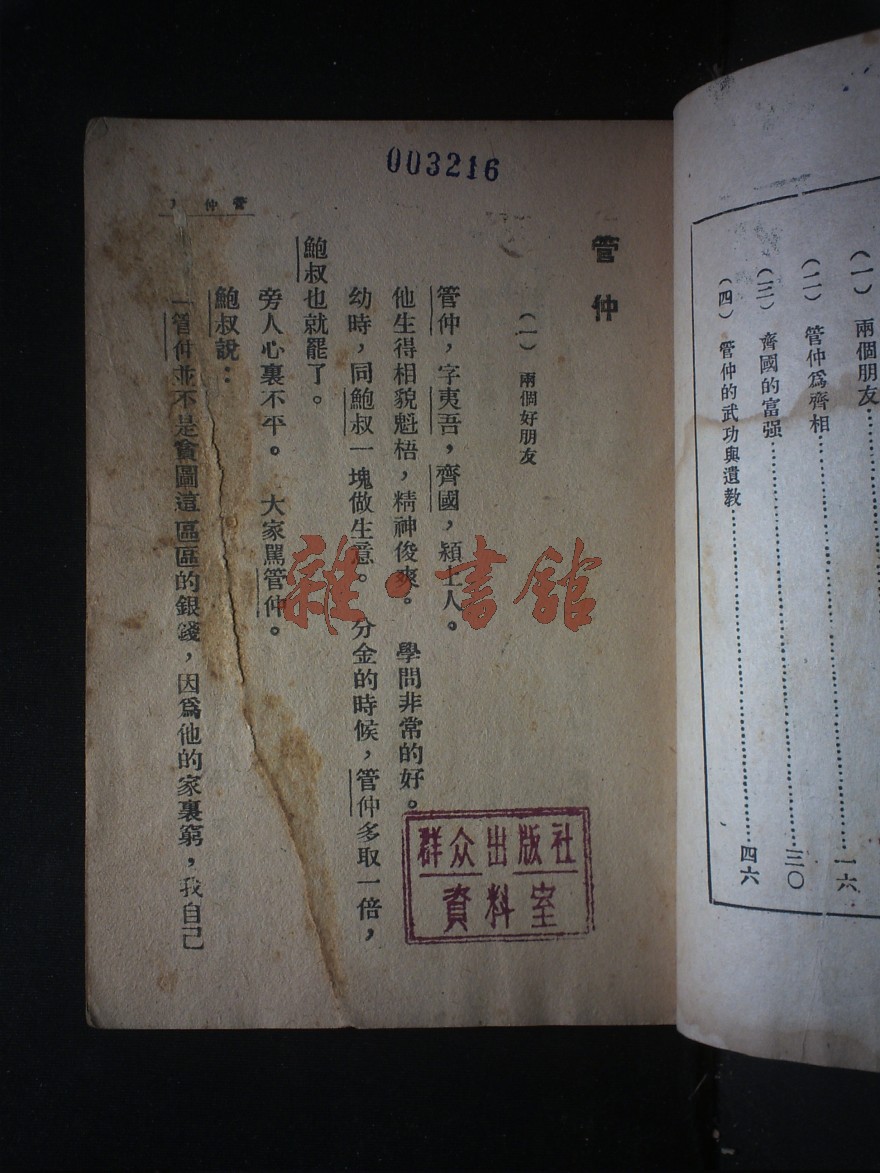 (一) 兩個朋友
(二) 管仲爲齊相 一六
(三) 齊國的富强 三〇
(四) 管仲的武功與遺教 四六
003216
管仲
管仲
(一) 兩個好朋友
管仲，字夷吾，齊國，潁上人。
他生得相貌魁梧，精神俊爽。 學問非常的好。
幼時，同鮑叔一塊做生意。 分金的時候，管仲多取一倍，
鮑叔也就罷了。
旁人心裏不平。 大家罵管仲。
鮑叔說：
「管仲並不是貪圖這區區的銀錢，因爲他的家裏窮，我自己
群众出版社
資料室
雜·書館